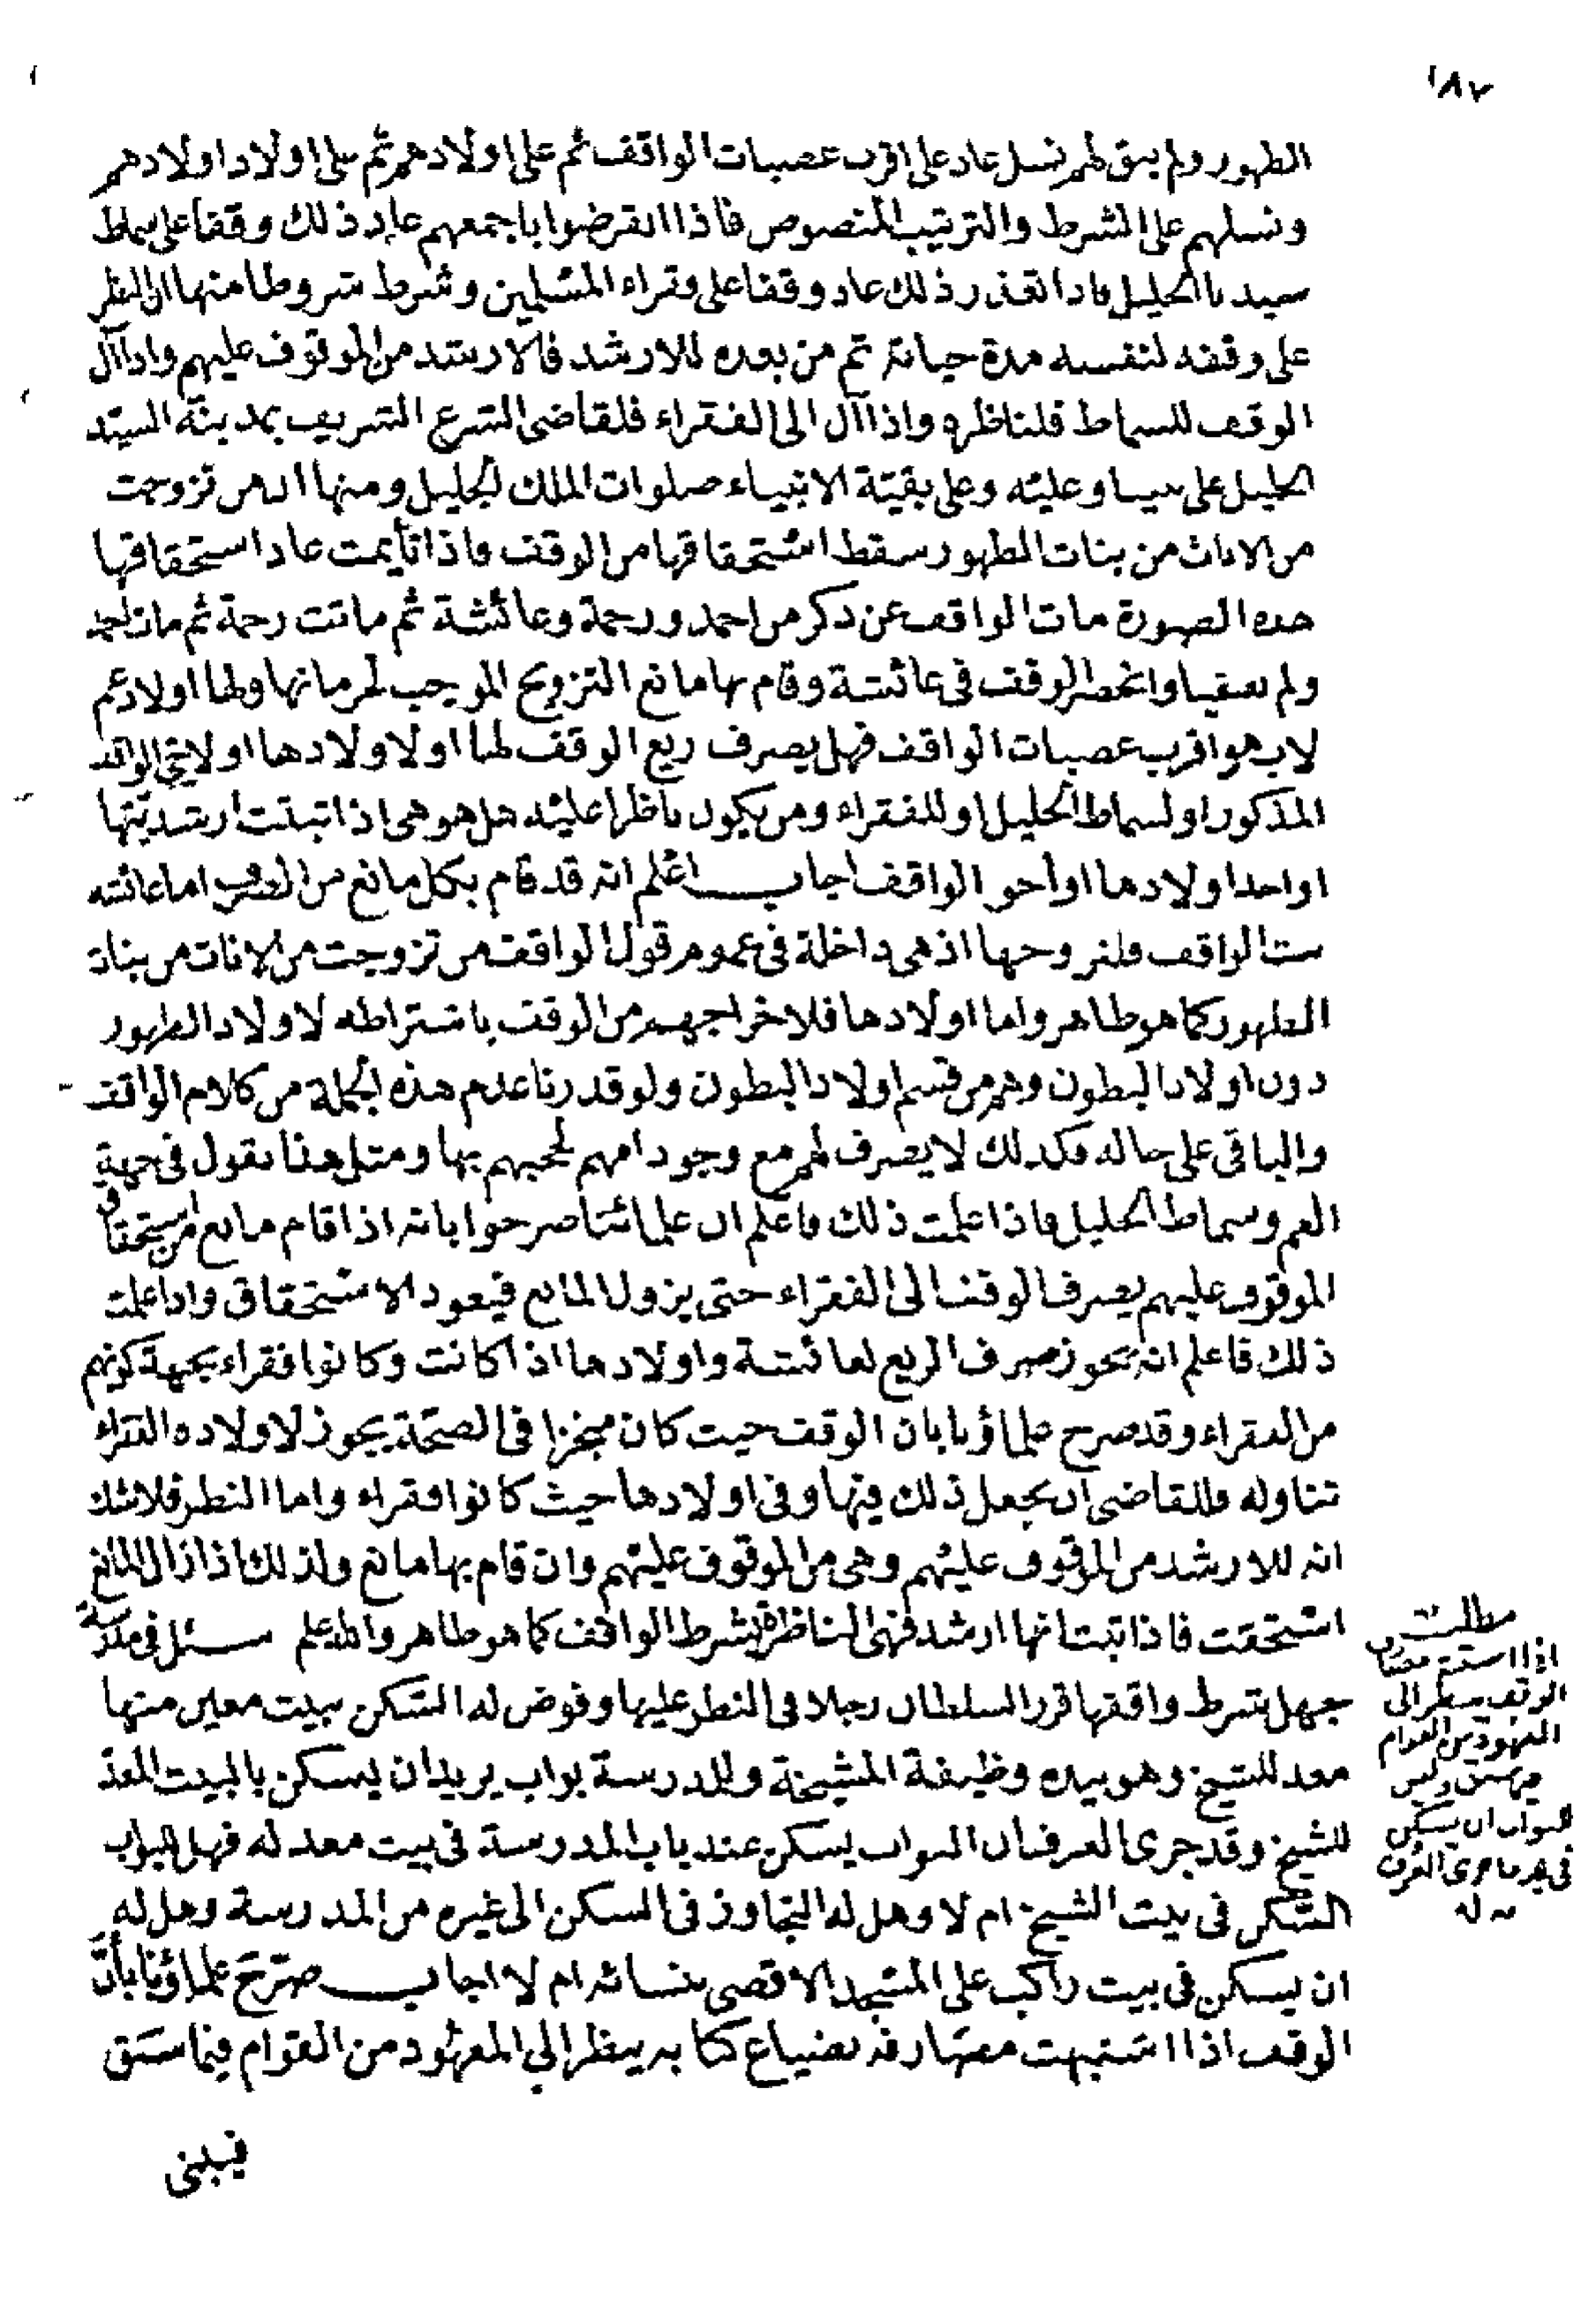 ١٨٧
الظهور ولم يبق لهم نسل عاد على اقرب عصبات الواقف ثم على اولادهم ثم على اولاد اولادهم
ونسلهم على الشرط والترتيب المنصوص فاذا انقرضوا باجمعهم عاد ذلك وقفا على سماط
سيدنا الخليل فاذا تعذر ذلك عاد وقفا على فقراء المسلمين وشرط شروطا منها ان النظر
على وقفه لنفسه مدة حياته ثم من بعده للارشد فالارشد من الموقوف عليهم واذا آل
الوقف للسماط فلناظره واذا آل الى الفقراء فلقاضى الشرع الشريف بمدينة السيد
الخليل على نبينا وعليه وعلى بقية الانبياء صلوات الملك الجليل ومنها ان من تزوجت
من الاناث من بنات الظهور سقط استحقاقها من الوقف فاذا تأيمت عاد استحقاقها
هذه الصورة مات الواقف عن ذكر من احمد ورحمة وعائشة ثم ماتت رحمة ثم مات احمد
ولم يعقبا وانحصر الوقف فى عائشة وقام بها مانع التزويج الموجب لحرمانها ولها اولاد عم
لاب هو اقرب عصبات الواقف فهل يصرف ريع الوقف لها او لاولادها او لاخى الواقف
المذكور او لسماط الخليل او للفقراء ومن يكون ناظرا عليه هل هو هى اذا تبتت ارشديتها
او احد اولادها او اخو الواقف اجاب اعلم انه قد قام بكل مانع من الصرف اما عائشه
بنت الواقف فلتزوجها اذ هى داخلة فى عموم قول الواقف من تزوجت من الاناث من بنات
الظهور كما هو ظاهر واما اولادها فلاخراجهم من الوقف باشتراطه لاولاد الظهور
دون اولاد البطون وهم من قسم اولاد البطون ولو قدرنا عدم هذه الجملة من كلام الواقف
والباقى على حاله فكذلك لا يصرف لهم مع وجود امهم لحجبهم بها ومثل هذا نقول فى جهة
العم وسماط الخليل فاذا علمت ذلك فاعلم ان علمائنا صرحوا بانه اذا قام مانع من استحقاق
الموقوف عليهم يصرف الوقف الى الفقراء حتى يزول المانع فيعود الاستحقاق واذا علمت
ذلك فاعلم انه يجوز صرف الريع لعائشة واولادها اذا كانت وكانوا فقراء بجهة كونهم
من الفقراء وقد صرح علماؤنا بان الوقف حيث كان منجزا فى الصحة يجوز لاولاده الفقراء
تناوله فللقاضى ان يجعل ذلك فيها وفى اولادها حيث كانوا فقراء واما النظر فلا شك
انه للارشد من الموقوف عليهم وهى من الموقوف عليهم وان قام بها مانع ولذلك اذا زال المانع
استحقت فاذا ثبت انها ارشد فهى الناظرة بشرط الواقف كما هو ظاهر والله اعلم سئل فى مدرسة
جهل شرط واقفها قرر السلطان رجلا فى النظر عليها وفوض له السكن ببيت معين منها
معد للشيخ وهو بيده وظيفة المشيخة وللمدرسة بواب يريد ان يسكن بالبيت المعد
للشيخ وقد جرى العرف ان البواب يسكن عند باب المدرسة فى بيت معد له فهل للبواب
السكن فى بيت الشيخ ام لا وهل له التجاوز فى السكن الى غيره من المدرسة وهل له
ان يسكن فى بيت راكب على المسجد الاقصى بنسائه ام لا اجاب صرح علماؤنا بأن
الوقف اذا اشتبهت مصارفه بضياع كتابه ينظر الى المعهود من القوام فيما سبق
فيبنى
مطلب
اذا اشتبه مصارف
الوقف ينظر الى
المعهود من القوام
وليس
للبواب ان يسكن
فى غير ما جرى العرف
به له